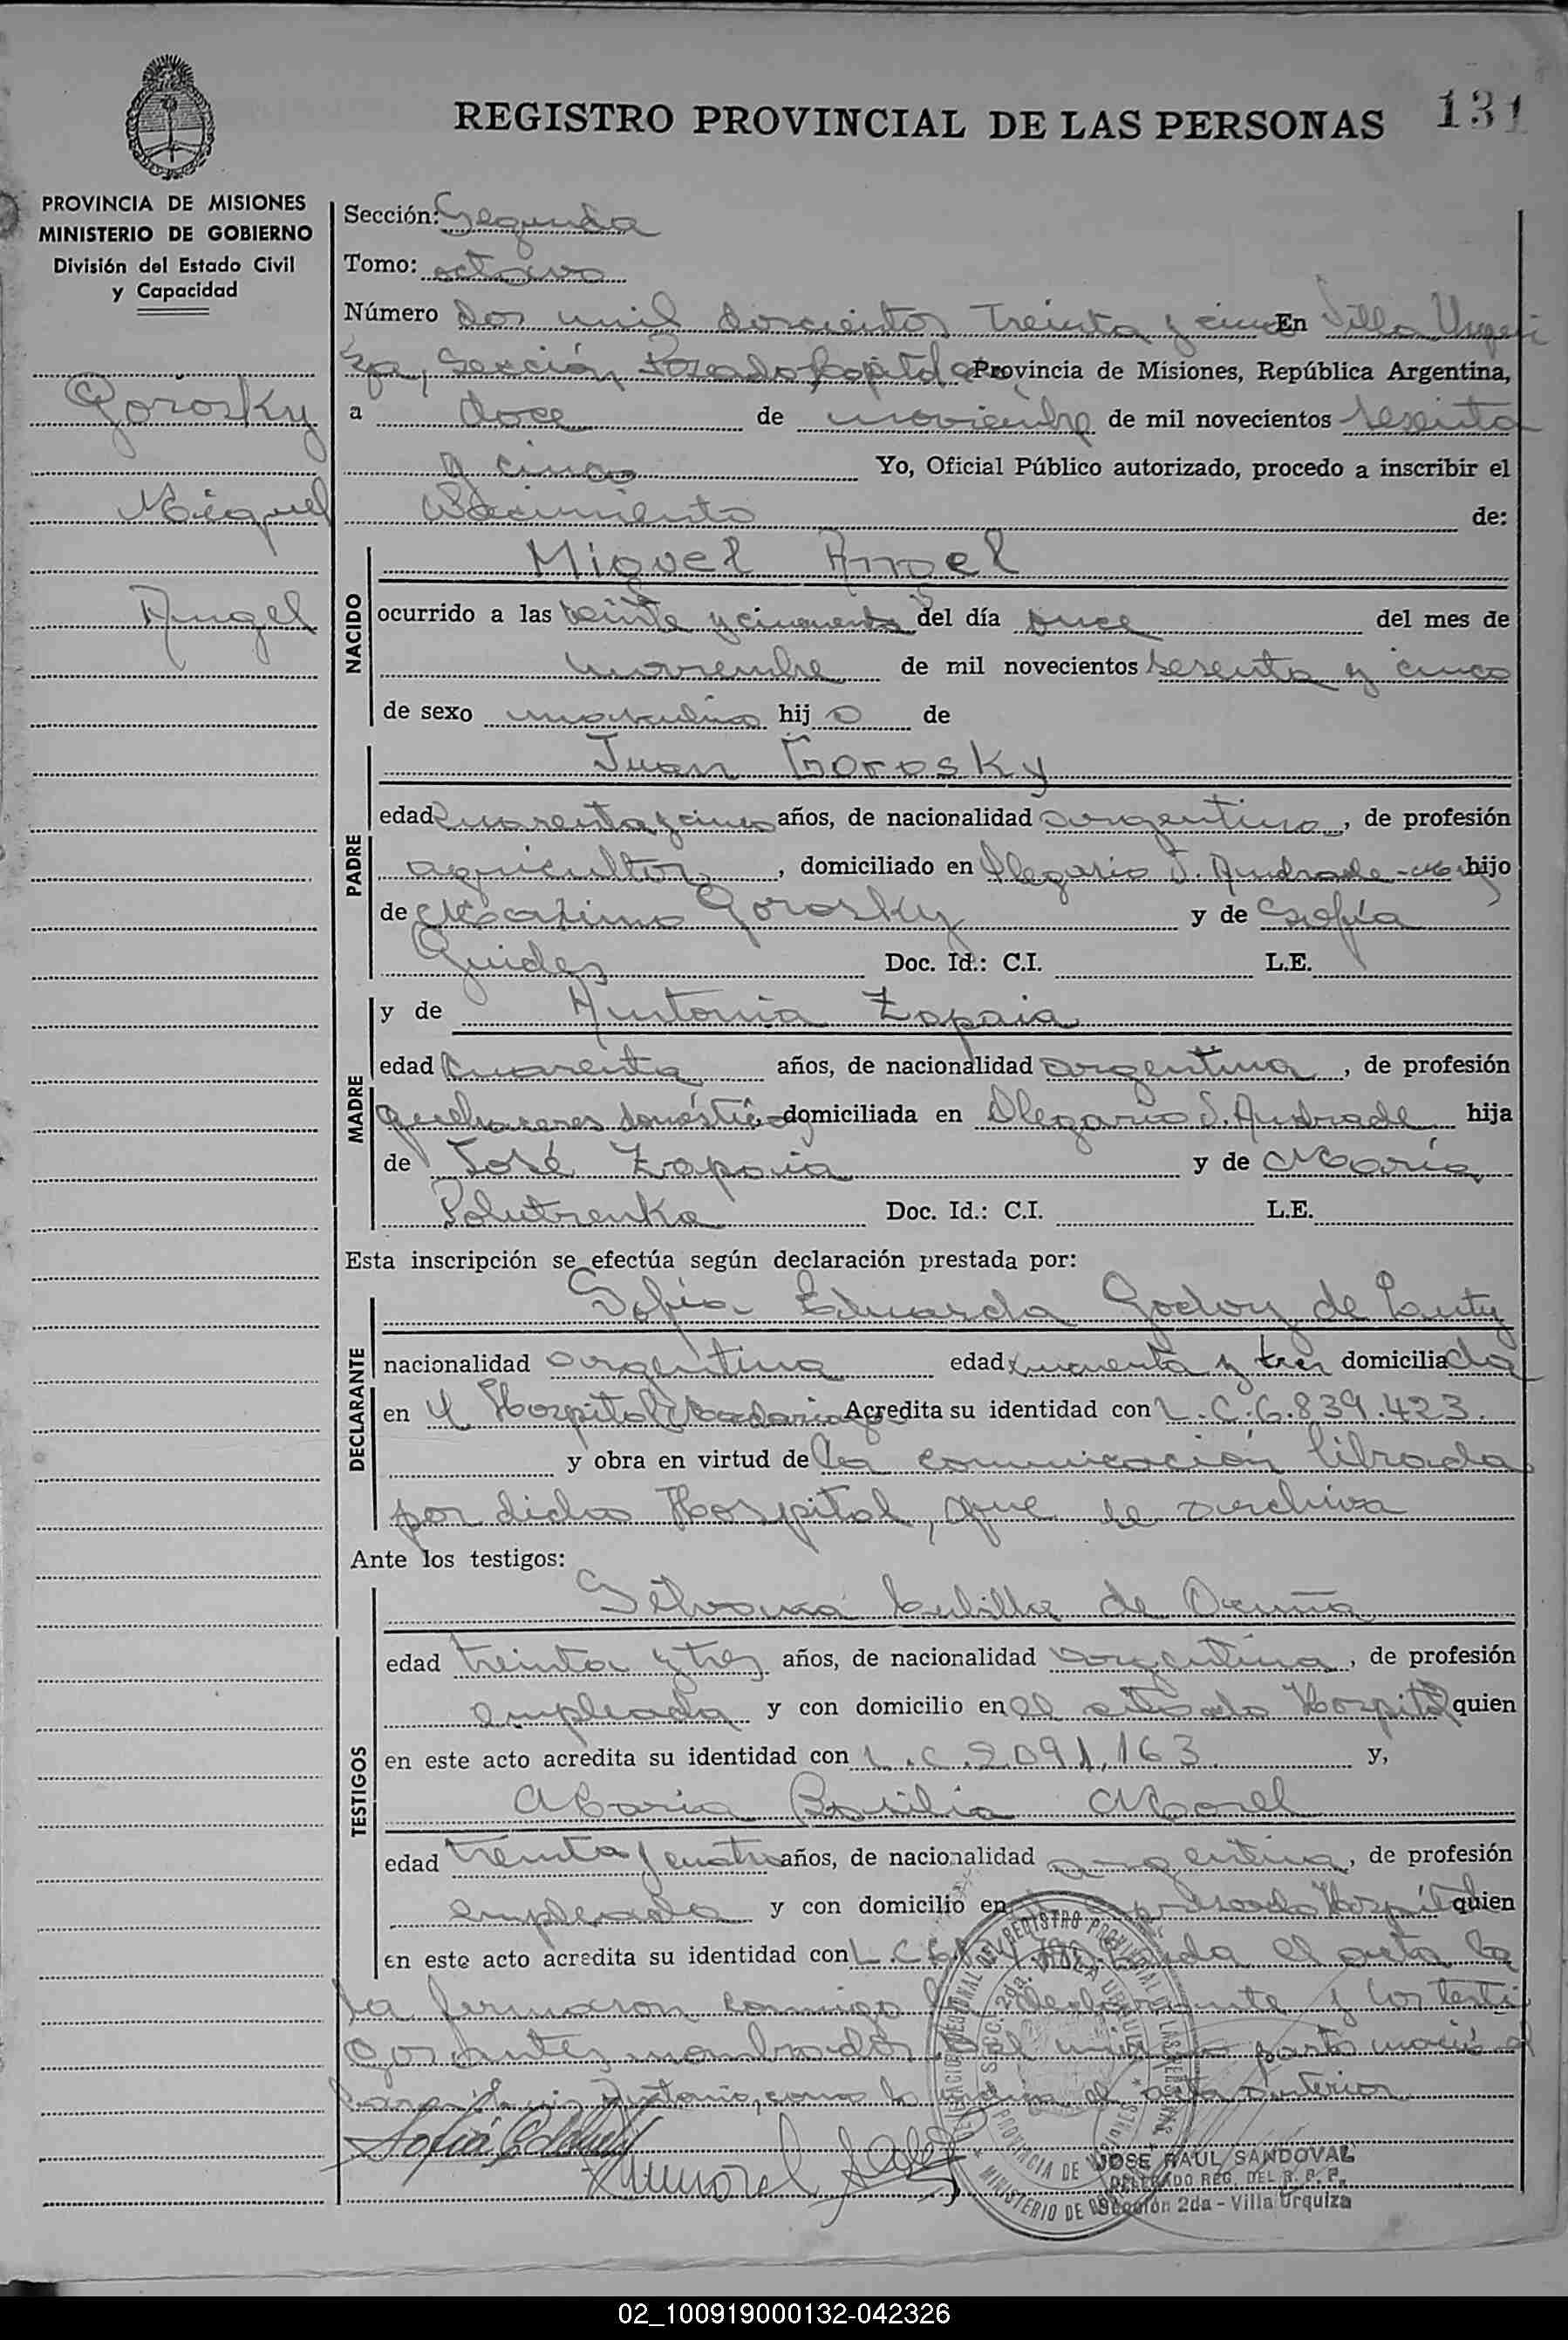 REGISTRO PROVINCIAL DE LAS PERSONAS 131
PROVINCIA DE MISIONES
MINISTERIO DE GOBIERNO
División del Estado Civil
y Capacidad
Gorosky
Miguel
Angel
Sección: Segunda
Tomo: octavo
Número Dos mil doscientos treinta y cinco En Villa Urqui
za, Sección Posadas Capital Provincia de Misiones, República Argentina,
a doce de noviembre de mil novecientos sesenta
y cinco Yo, Oficial Público autorizado, procedo a inscribir el
Nacimiento de:
NACIDO
Miguel Angel
ocurrido a las veinte y cincuenta del día once del mes de
noviembre de mil novecientos sesenta y cinco
de sexo masculino hij o de
PADRE
Juan Gorosky
edad cuarenta y cinco años, de nacionalidad argentino, de profesión
agricultor, domiciliado en Olegario V. Andrade hijo
de Máximo Gorosky y de Sofía
Doc. Id.: C.I. L.E.
MADRE
y de Antonia Zapaia
edad cuarenta años, de nacionalidad argentina, de profesión
quehaceres domésticos, domiciliada en Olegario V. Andrade hija
de José Zapaia y de María
Polutrenka Doc. Id.: C.I. L.E.
Esta inscripción se efectúa según declaración prestada por:
DECLARANTE
Sofía Eduarda Godoy de
nacionalidad argentina edad y tres domicilia da
en el Hospital Madariaga Acredita su identidad con L.C. 6.839.423.
y obra en virtud de la comunicación librada
por dicho Hospital, que se archiva
Ante los testigos:
TESTIGOS
Silvana de Acuña
edad treinta y tres años, de nacionalidad argentina, de profesión
empleada y con domicilio en el citado Hospital quien
en este acto acredita su identidad con L.C. 2.091.163. y,
María Basilia Morel
edad treinta y cuatro años, de nacionalidad argentina, de profesión
empleada y con domicilio en Hospital quien
en este acto acredita su identidad con L.C. el acta la
firmaron conmigo la declarante y los testi
gos antes nombrados. Del mismo parto nació
Antonio, como lo indica el acta anterior
JOSE RAUL SANDOVAL
DELEGADO REG. DEL R. P. P.
Sección 2da - Villa Urquiza
02_100919000132-042326